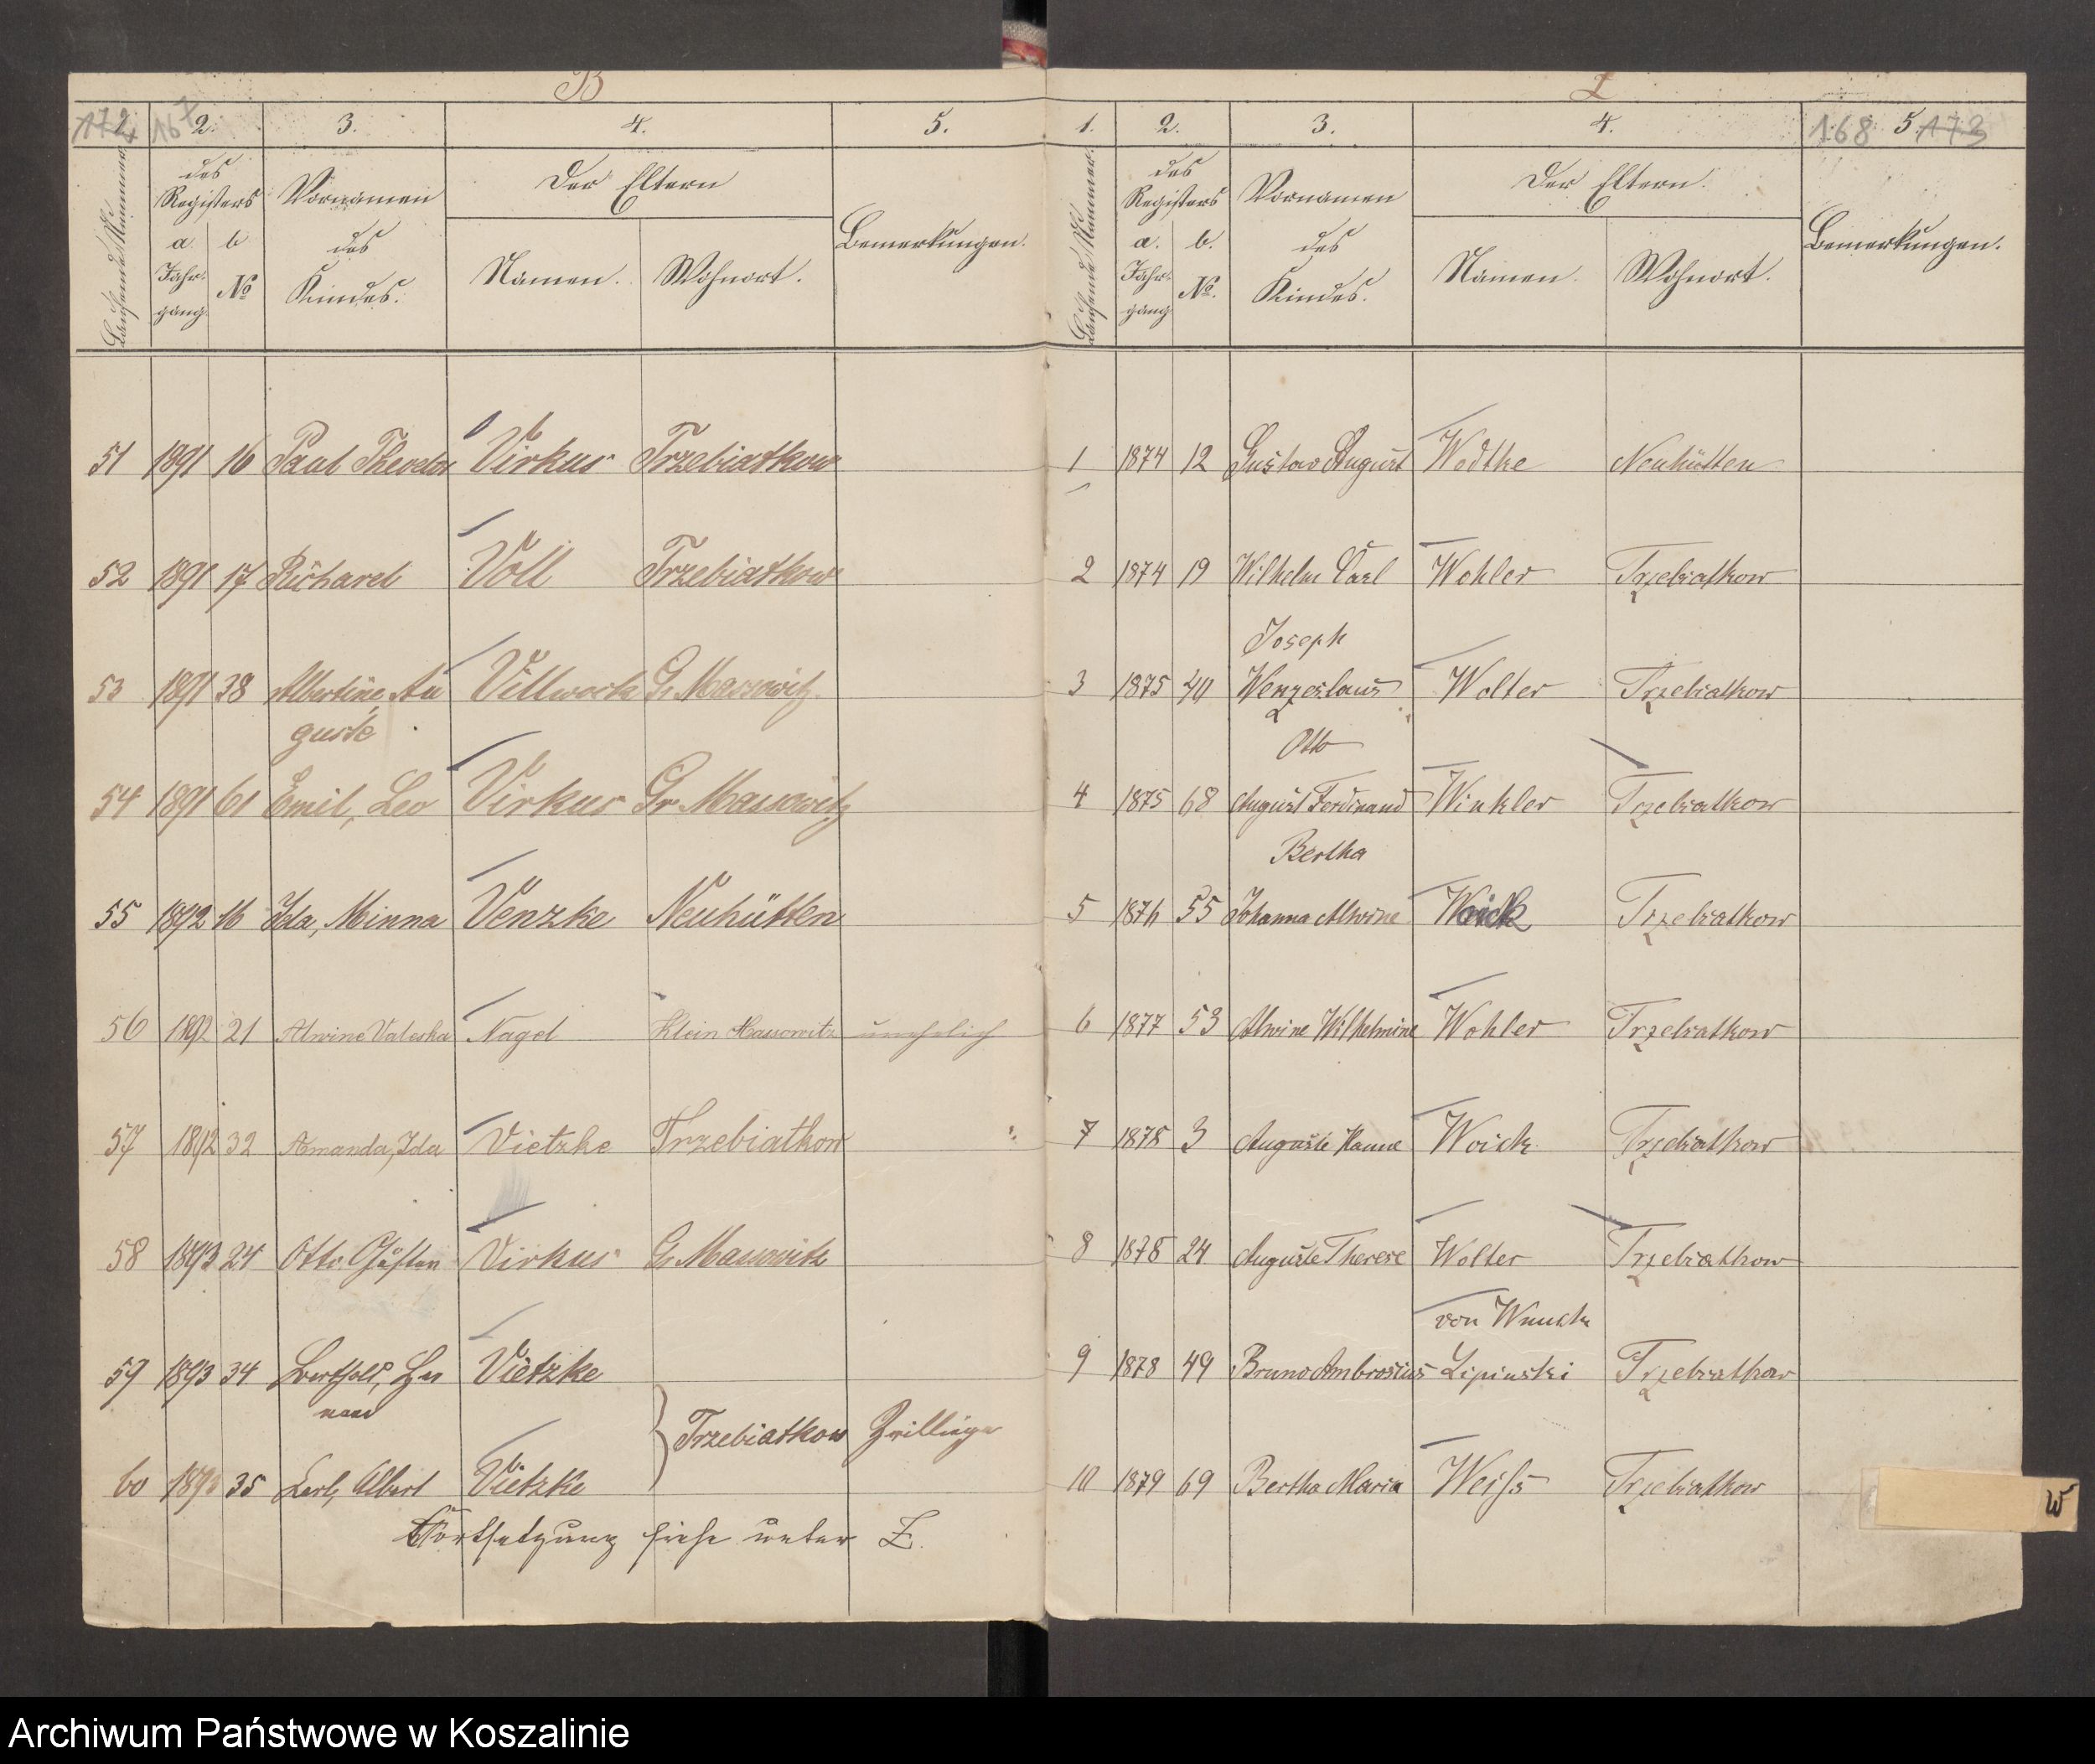 B
172 167
1. 2. 3. 4. 5.
Laufende Nummer
des Registers
a. Jahrgang
b. No
Vornamen des Kindes.
Der Eltern
Namen. Wohnort.
Bemerkungen.
51 1891 16 Paul Theodor Virkus Trzebiatkow
52 1891 17 Richard Voll Trzebiatkow
53 1891 38 Albertine, Au Villwock Gr Massowitz
guste
54 1891 61 Emil, Leo Virkus Gr. Massowitz
55 1892 16 Ida, Minna Venzke Neuhütten
56 1892 21 Alwine Valeska Nagel Klein Massowitz unehelich
57 1892 32 Amanda, Ida Vietzke Trzebiatkow
58 1893 24 Otto Virkus Gr Massowitz
59 1893 34 Berthold, Vietzke
Trzebiatkow Zwillinge
60 1893 35 Carl, Albert Vietzke
Fortsetzung siehe unter Z.
168 173
1. 2. 3. 4. 5.
Laufende Nummer.
des Registers
a. Jahrgang
b. No.
Vornamen des Kindes.
Der Eltern.
Namen. Wohnort.
Bemerkungen.
1 1874 12 Gustav August Wodtke Neuhütten
2 1874 19 Wilhelm Carl Wohler Trzebiatkow
Joseph
3 1875 40 Wenzeslaus Wolter Trzebiatkow
Otto
4 1875 68 August Ferdinand Winkler Trzebiatkow
Bertha
5 1876 55 Johanna Alwine Woick Trzebiatkow
6 1877 53 Alwine Wilhelmine Wohler Trzebiatkow
7 1878 3 Auguste Hanna Woick Trzebiatkow
8 1878 24 Auguste Therese Wolter Trzebiatkow
von
9 1878 49 Bruno Ambrosius Lipinski Trzebiatkow
10 1879 69 Bertha Maria Weiß Trzebiatkow
W
Archiwum Państwowe w Koszalinie